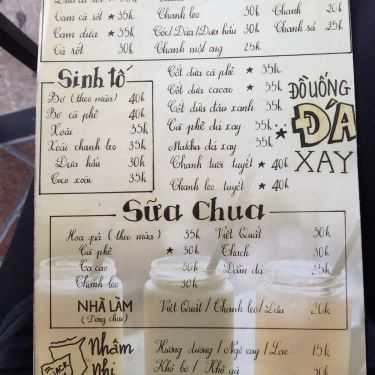 Cam cà rốt ★ 35k
Cam dứa ★ 35k
Cà rốt 30k
Chanh leo 30k
Cóc/Dứa/Dưa hấu 30k
Chanh mật ong 25k
Chanh 20k
Chanh sả 25k
Sinh tố
Bơ (theo mùa) 40k
Bơ cà phê 40k
Xoài 35k
Xoài chanh leo 35k
Dưa hấu 30k
Coco xoài 35k
Cốt dừa cà phê ★ 35k
Cốt dừa cacao ★ 35k
Cốt dừa đậu xanh 35k
Cà phê đá xay 35k
Matcha đá xay 35k
Chanh tươi tuyết ★ 40k
Chanh leo tuyết ★ 40k
ĐỒ UỐNG
ĐÁ
XAY
Sữa Chua
Hoa quả (theo mùa) 35k
Cà phê ★ 30k
Ca cao 30k
Chanh leo 30k
Việt Quất 30k
Thạch 30k
Dầm đá 25k
NHÀ LÀM
(Đóng chai)
Việt Quất / Chanh leo / Dứa 20k
Nhâm
Nhi
Hướng dương / Ngô cay / Lạc 15k
Khô bò / Khô gà